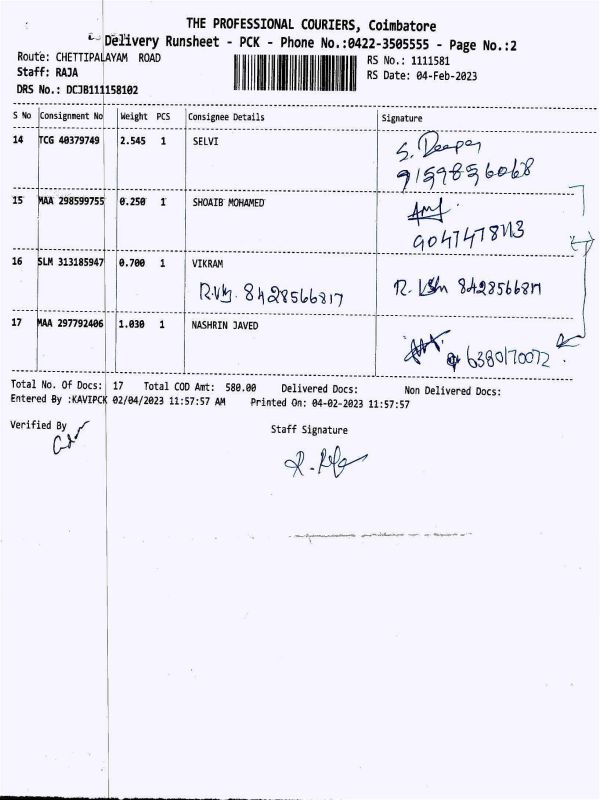 THE PROFESSIONAL COURIERS, Coimbatore
Delivery Runsheet - PCK - Phone No.:0422-3505555 - Page No.:2
Route: CHETTIPALAYAM ROAD
RS No.: 1111581
Staff: RAJA
RS Date: 04-Feb-2023
DRS No.: DCJB111158102
S No Consignment No Weight PCS Consignee Details Signature
14 TCG 40379749 2.545 1 SELVI
S. Deepa
9159856068
15 MAA 298599755 0.250 1 SHOAIB MOHAMED
16 SLM 313185947 0.700 1 VIKRAM
8428566817 8428566817
17 MAA 297792406 1.030 1 NASHRIN JAVED
6380170072
Total No. Of Docs: 17 Total COD Amt: 580.00 Delivered Docs: Non Delivered Docs:
Entered By :KAVIPCK 02/04/2023 11:57:57 AM Printed On: 04-02-2023 11:57:57
Verified By
Staff Signature